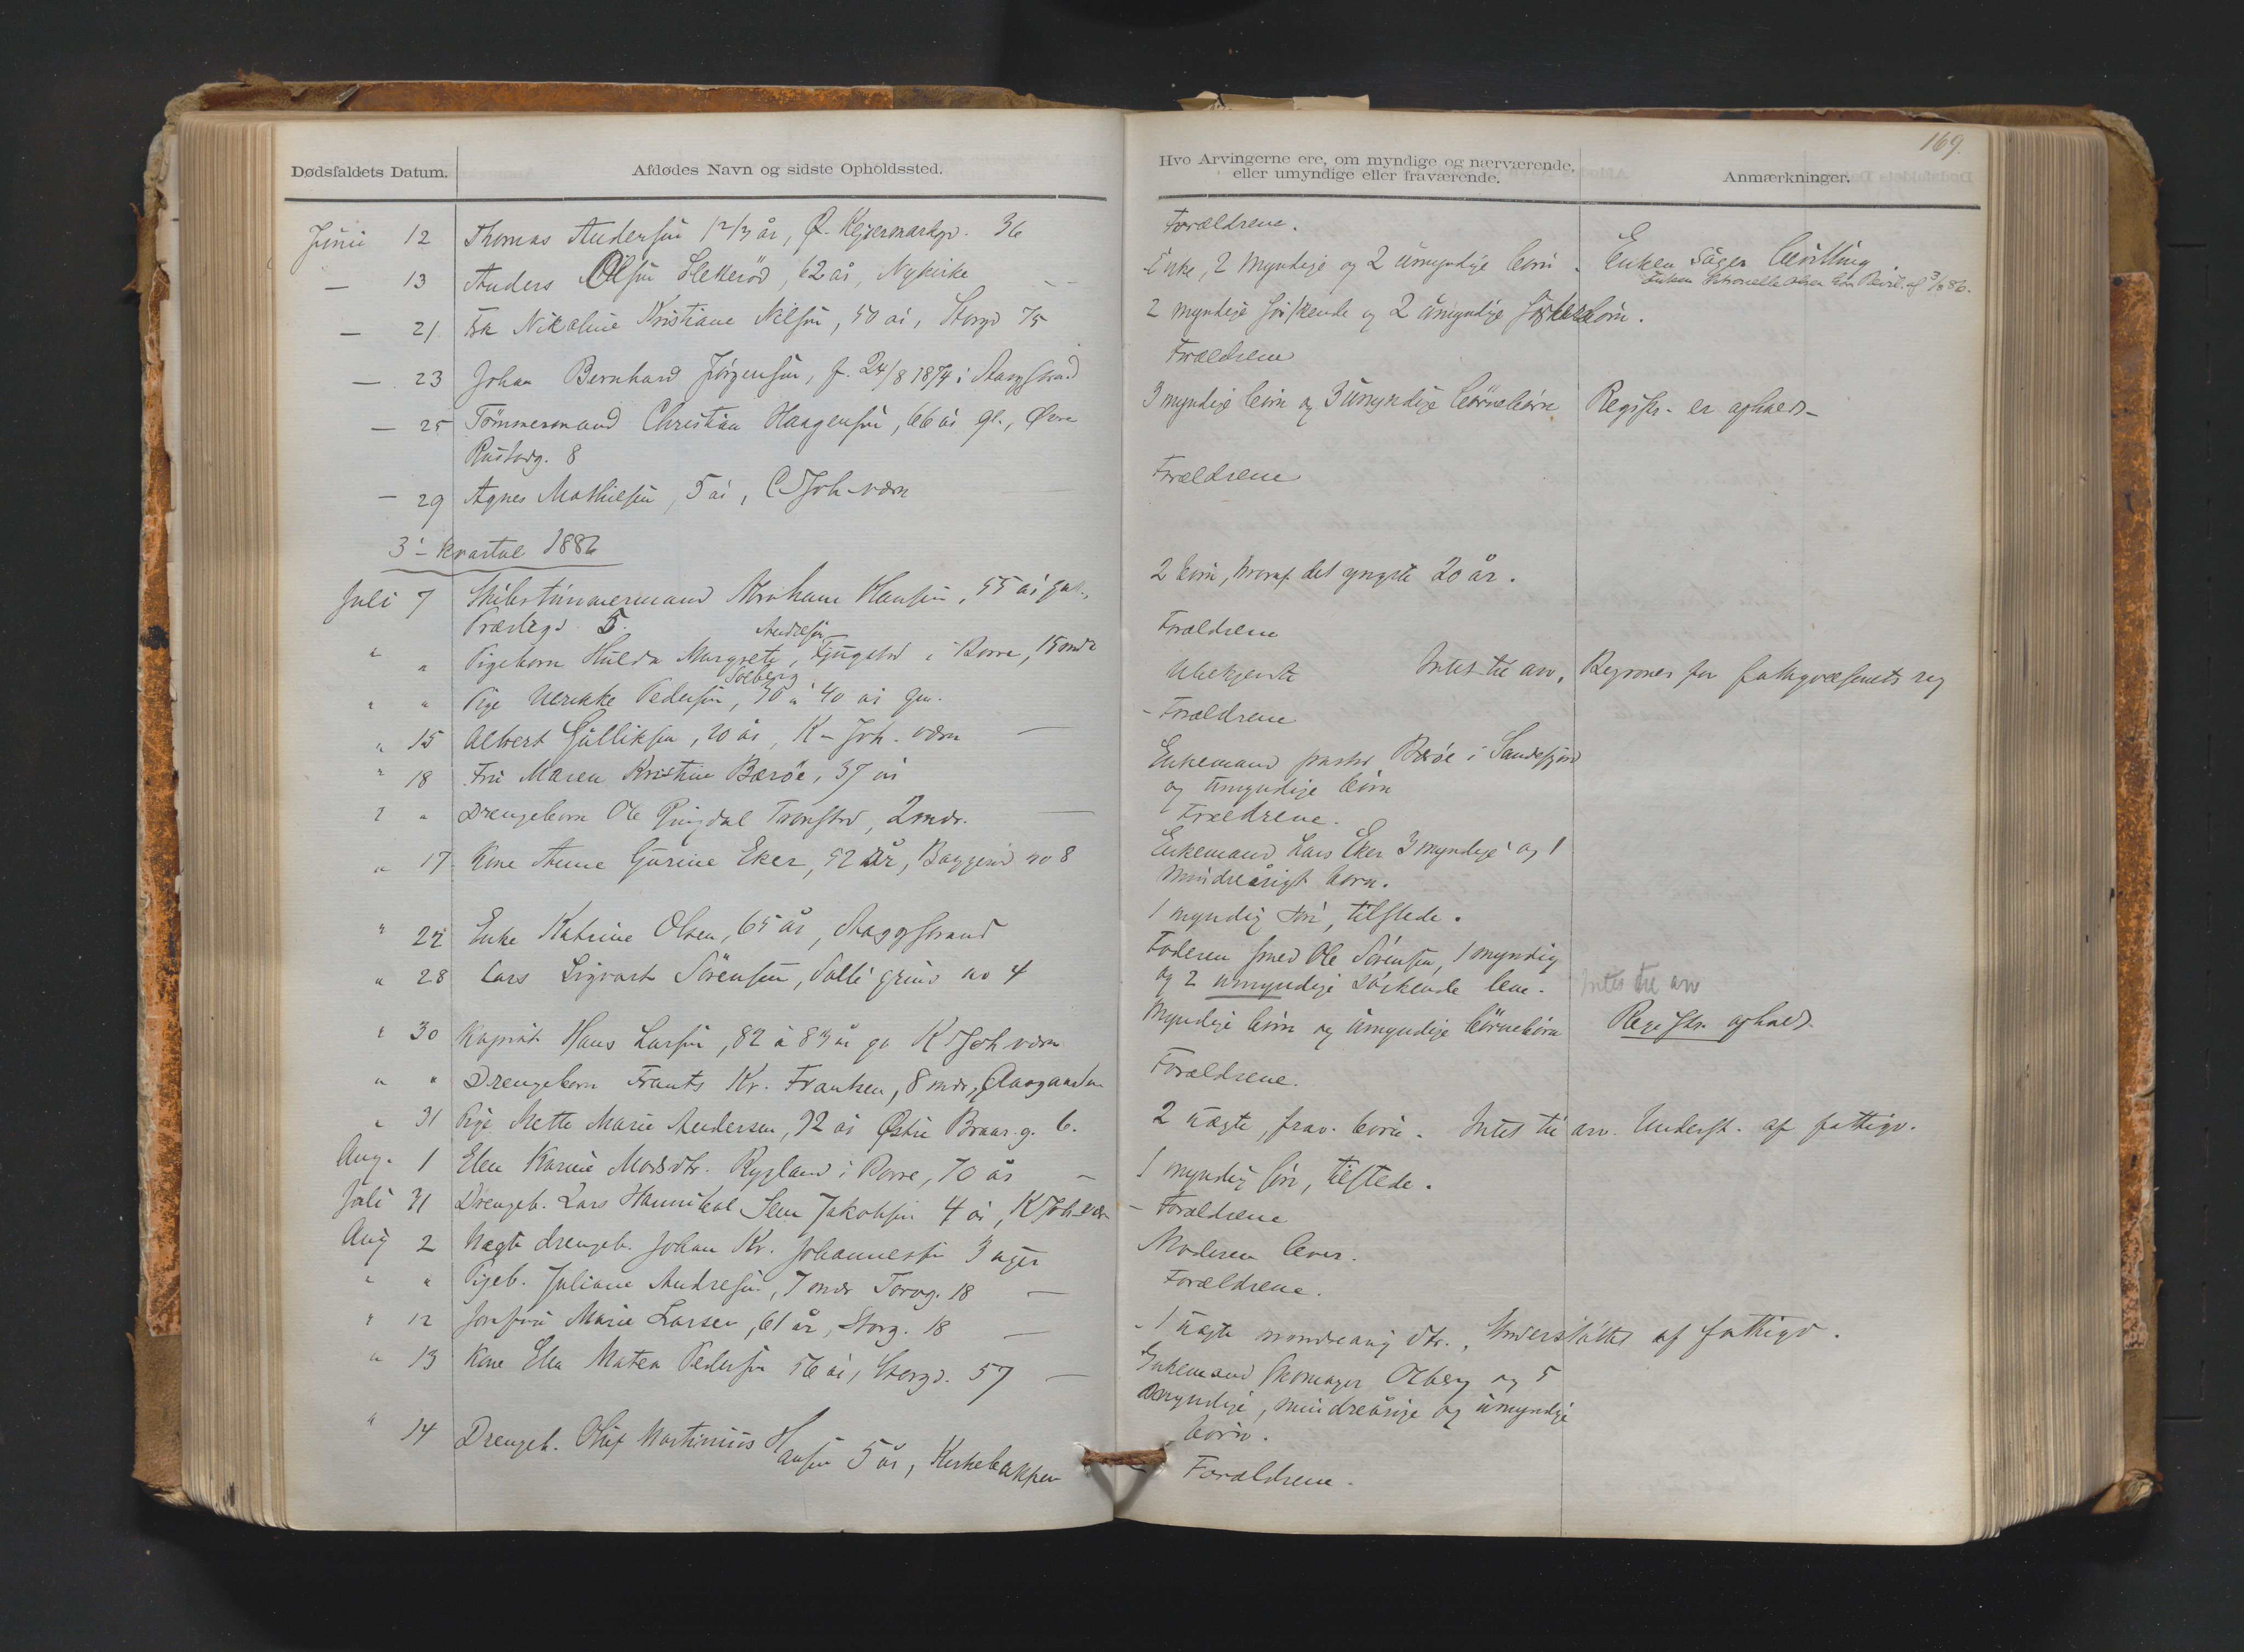 169.
Dødsfaldets Datum. Afdødes Navn og sidste Opholdssted.
Hvo Arvingerne ere, om myndige og nærværende, eller umyndige eller fraværende. Anmærkninger.
Juni 12 Thomas Andersen 1 2/3 år, Ø. 36
Forældrene.
— 13 Anders Olsen 62 år, Nykirke
Enke, 2 myndige og 2 umyndige börn. Enken söger bevilling
Enken Olsen har Bevil. af 3/8 86.
— 21 Nikoline Kristiane Nilsen, 50 år, Storgd 75
2 myndige söskende og 2 umyndige söskendebörn.
— 23 Johan Bernhard Jörgensen, f. 24/8 1874 i Aasgstrand
Forældrene
— 25 Tömmermand Christian Haagensen, 66 år gl., Övre
8
3 myndige börn og 3 umyndige börnebörn Registr. er afholdt
— 29 Agnes Mathisen, 5 år, Joh-værn
Forældrene
3' - kvartal 1886
Juli 7 Skibstömmermand Abraham Hansen, 55 år gul.,
Præstegd. 5.
2 börn, hvoraf det yngste 20 år.
" " Pigebarn Hulda Margrete Andresen, i Borre, 15 mdr
Forældrene
" " Pige Ulrikke Pedersen Solberg, 30 à 40 år gm.
Ubekjendte Intet til arv, Begraves for fattigvæsenets reg
" 15 Albert Gulliksen, 20 år, K- Joh. værn —
- Forældrene
" 18 Fru Maren Kristine Barøe, 37 år
Enkemand pastor Barøe i Sandefjord
og umyndige börn
" " Drengebarn Ole Ringdal Tronstad, 2 mdr. —
Forældrene.
" 17 Kone Anne Gurine Eker, 52 år, Baggerød no 8
Enkemand Lars Eker 3 myndige og 1
mindreårigt barn.
" 22 Enke Katrine Olsen, 65 år, Aasgstrand
1 myndig sön, tilstede.
" 28 Lars Sigvart Sörensen, grind no 4
Faderen smed Ole Sörensen, 1 myndig
og 2 umyndige söskende leve. Intet til arv
" 30 Hans Larsen, 82 à 83 år gl K Joh værn
Myndige börn og umyndige börnebörn Registr. afholdt
" " Drengebarn Frants Kr. Frantsen, 8 mdr, Aasgaarden
Forældrene.
" 31 Pige Mette Marie Andersen, 72 år Østre Braar. g. 6.
2 uægte, frav. börn. Intet til arv. Underst. af fattigv.
Aug. 1 Elen Karine Madsdtr. Rygland i Borre, 70 år —
1 myndig sön, tilstede.
Juli 31 Drengeb. Lars Hannibal Jakobsen 4 år, K Joh-værn
- Forældrene
Aug 2 Uægte drengeb. Johan Kr. Johannessen 3 uger
Moderen lever.
" " Pigeb. Juliane Andresen, 7 mdr Torvg. 18 —
Forældrene.
" 12 Jomfru Marie Larsen, 61 år, Storg. 18 —
- 1 uægte mindreårig dtr., Understöttet af fattigv.
" 13 Kone Elen Matea Pedersen 56 år, Storgd. 57 —
Enkemand skomager Olberg og 5
myndige, mindreårige og umyndige
börn.
" 14 Drengeb. Oluf Martinius Hansen 5 år, Kirkebakken
Forældrene.